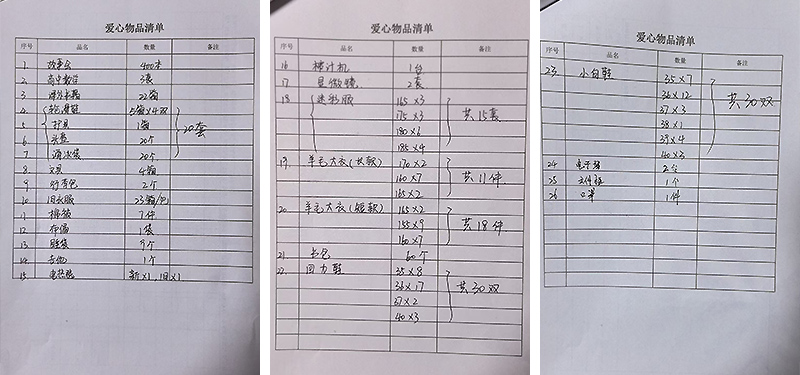 爱心物品清单
序号 品名 数量 备注
1 故事会 400本
2 高中教材 3袋
3 22箱
4 轮滑鞋 5箱×4双
5 护具 1箱 20套
6 头盔 20个
7 滑冰袋 20个
8 文具 4箱
9 行李包 2个
10 旧衣服 23箱/包
11 棉被 7件
12 1袋
13 睡袋 9个
14 吉他 1个
15 新×1,旧×1
爱心物品清单
序号 品名 数量 备注
16 榨汁机 1台
17 显微镜 2套
18 迷彩服 165×3
175×3 共15套
180×6
185×4
19 羊毛大衣(长款) 170×2
160×7 共11件
165×2
20 羊毛大衣(短款) 165×2
155×9 共18件
160×7
21 书包 60个
22 回力鞋 35×8
36×17 共30双
37×2
40×3
爱心物品清单
序号 品名 数量 备注
23 小白鞋 35×7
36×12
37×3 共30双
38×1
39×4
40×3
24 电子琴 2台
25 文件柜 1个
26 1件